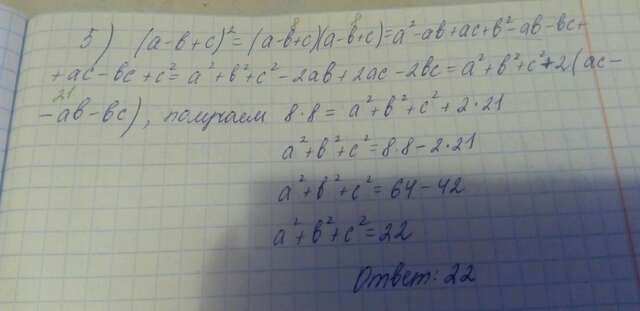 5) (a-b+c)² = (a-b+c)(a-b+c) = a²-ab+ac+b²-ab-bc+
8 8
+ac-bc+c² = a²+b²+c²-2ab+2ac-2bc = a²+b²+c²+2(ac-
21
-ab-bc), получаем 8·8 = a²+b²+c²+2·21
a²+b²+c²=8·8-2·21
a²+b²+c²=64-42
a²+b²+c²=22
Ответ: 22